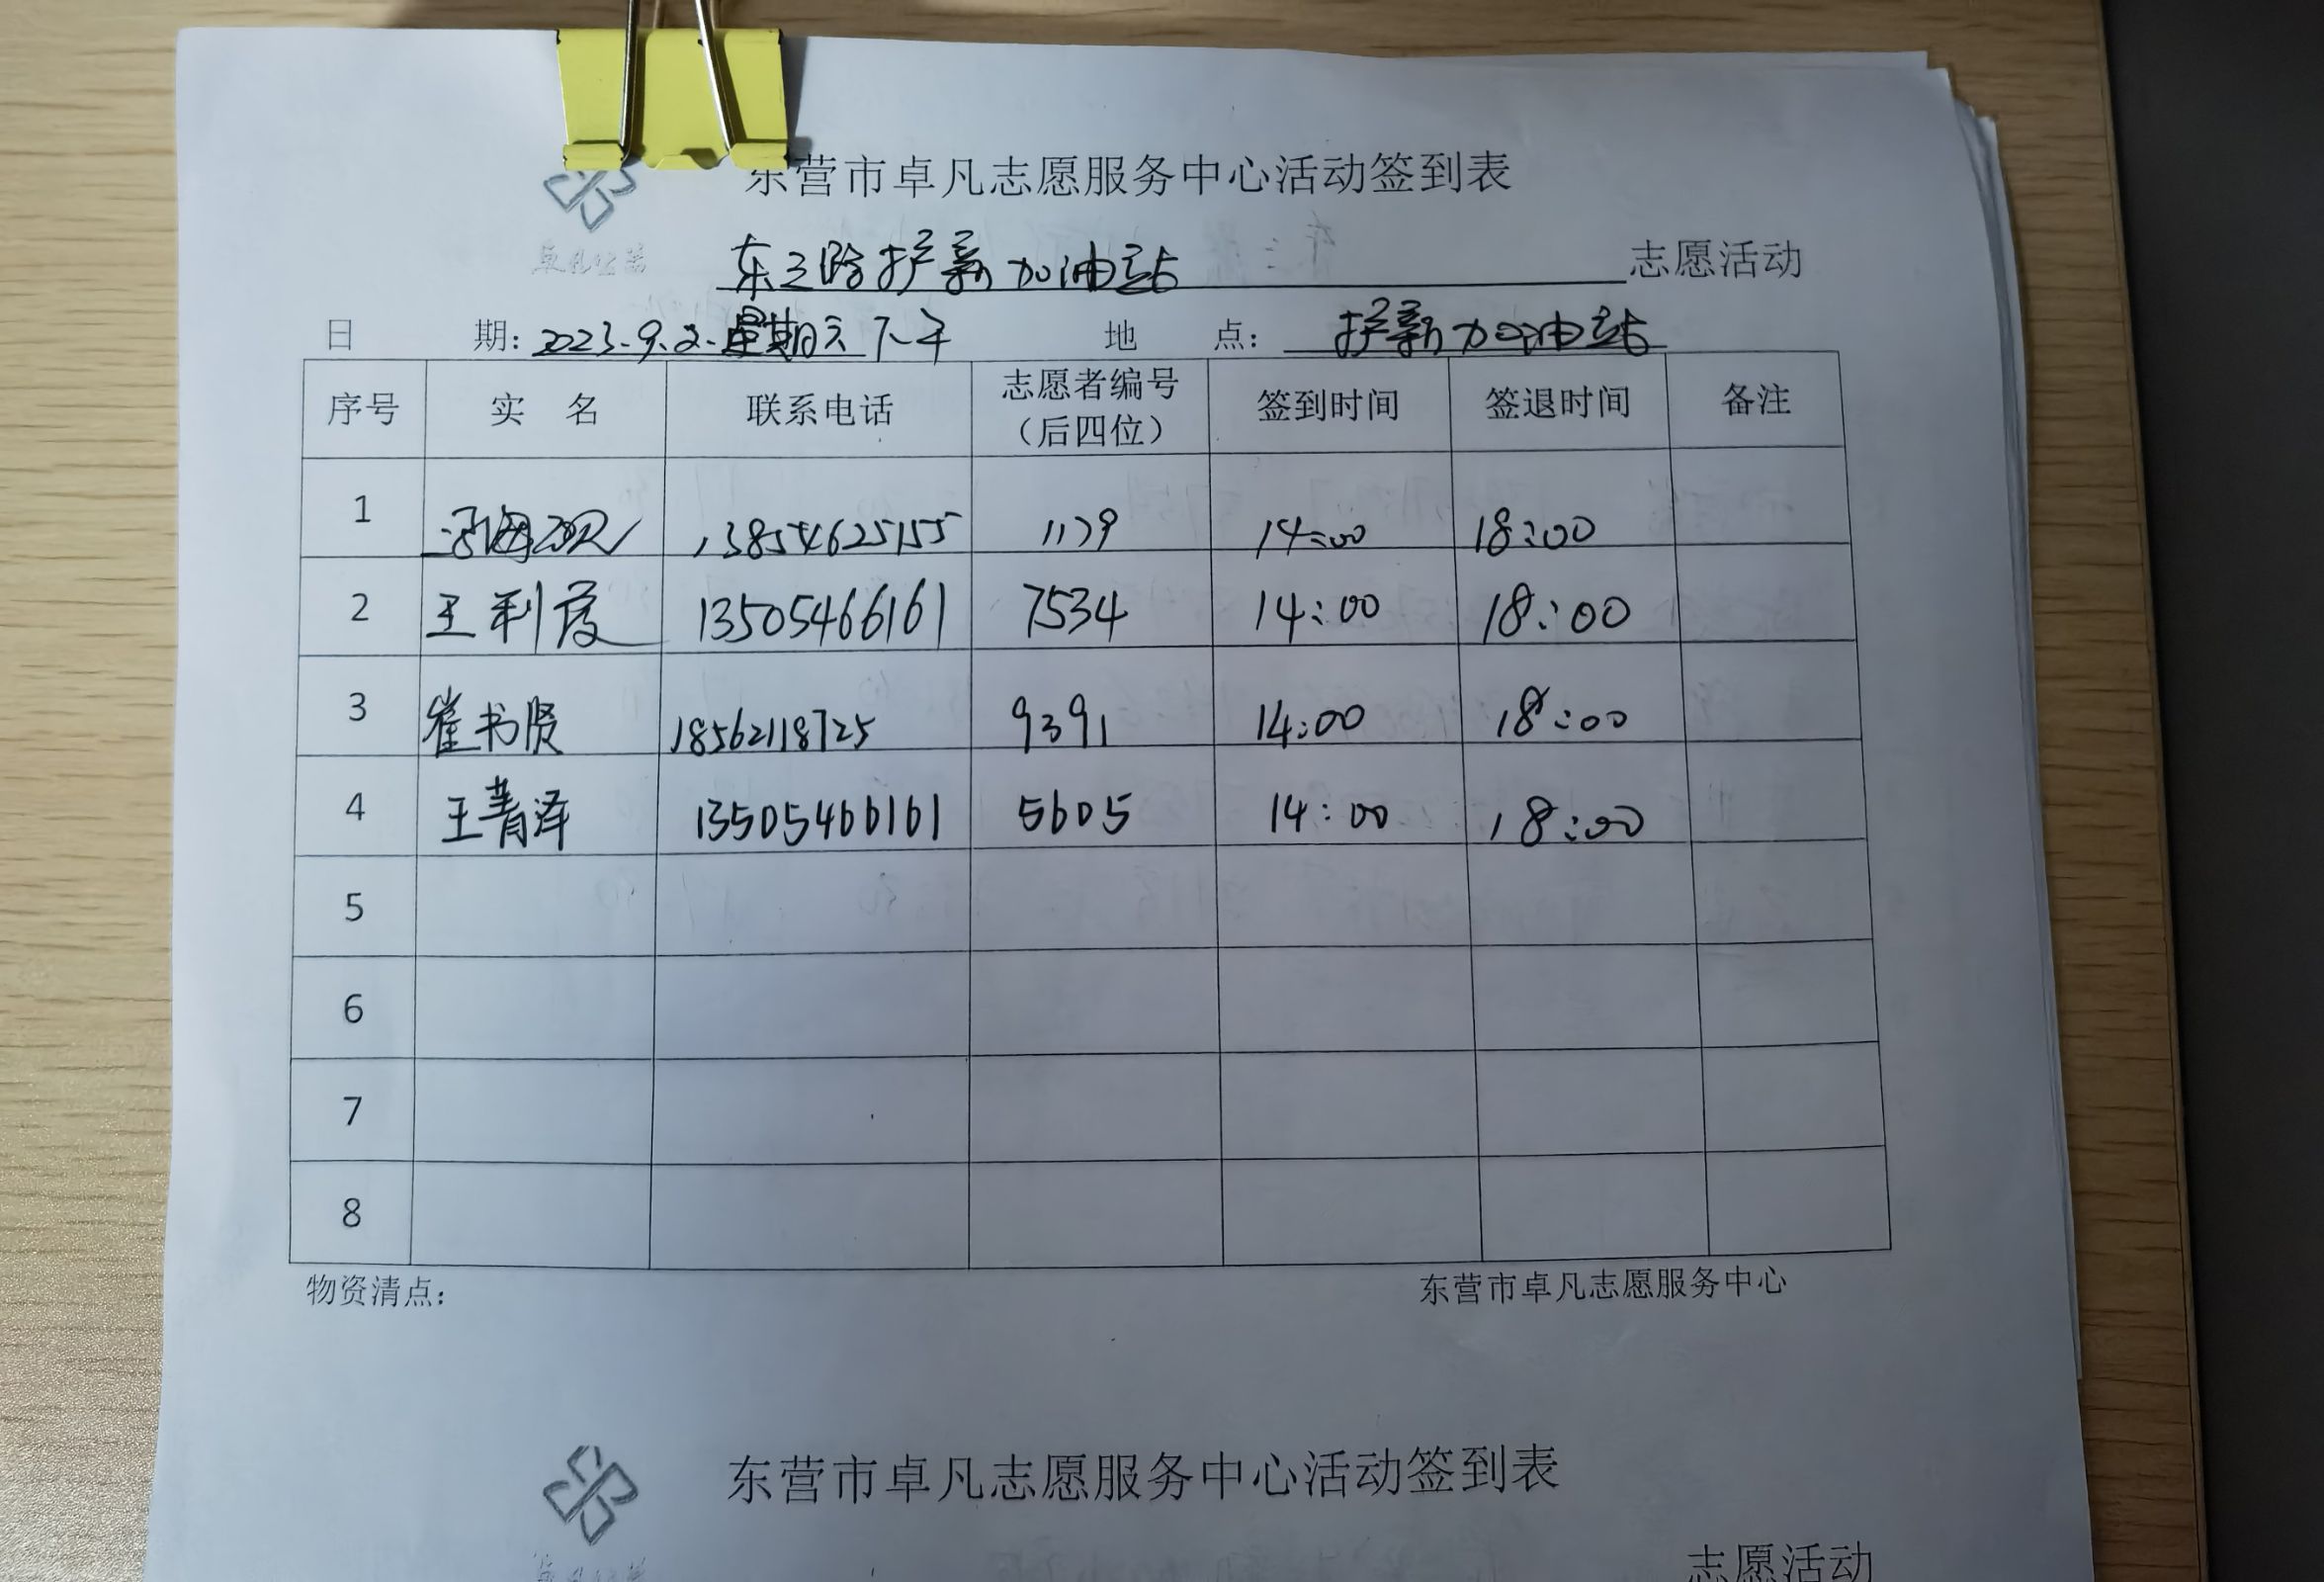 东营市卓凡志愿服务中心活动签到表
东三路护薪加油站 志愿活动
日 期: 2023.9.2.星期六下午 地 点: 护薪加油站
序号 实 名 联系电话 志愿者编号（后四位） 签到时间 签退时间 备注
1 13854625155 14:00 18:00
2 王利霞 13505466161 7534 14:00 18:00
3 崔书贤 18562118725 9391 14:00 18:00
4 王菁泽 13505466161 5605 14:00 18:00
5
6
7
8
物资清点: 东营市卓凡志愿服务中心
东营市卓凡志愿服务中心活动签到表
志愿活动